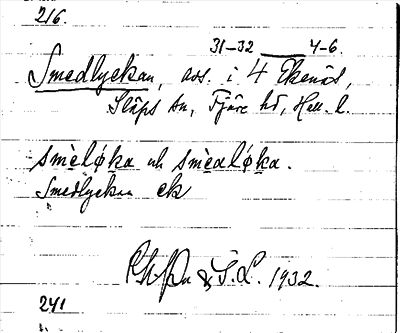 216.
31-32 4-6.
Smedlyckan, avs. i 4 Ekenäs,
Släps sn, Fjäre hd, Hall. l.
smèløka och smèaløka.
Smedlyckan ek
1932.
241